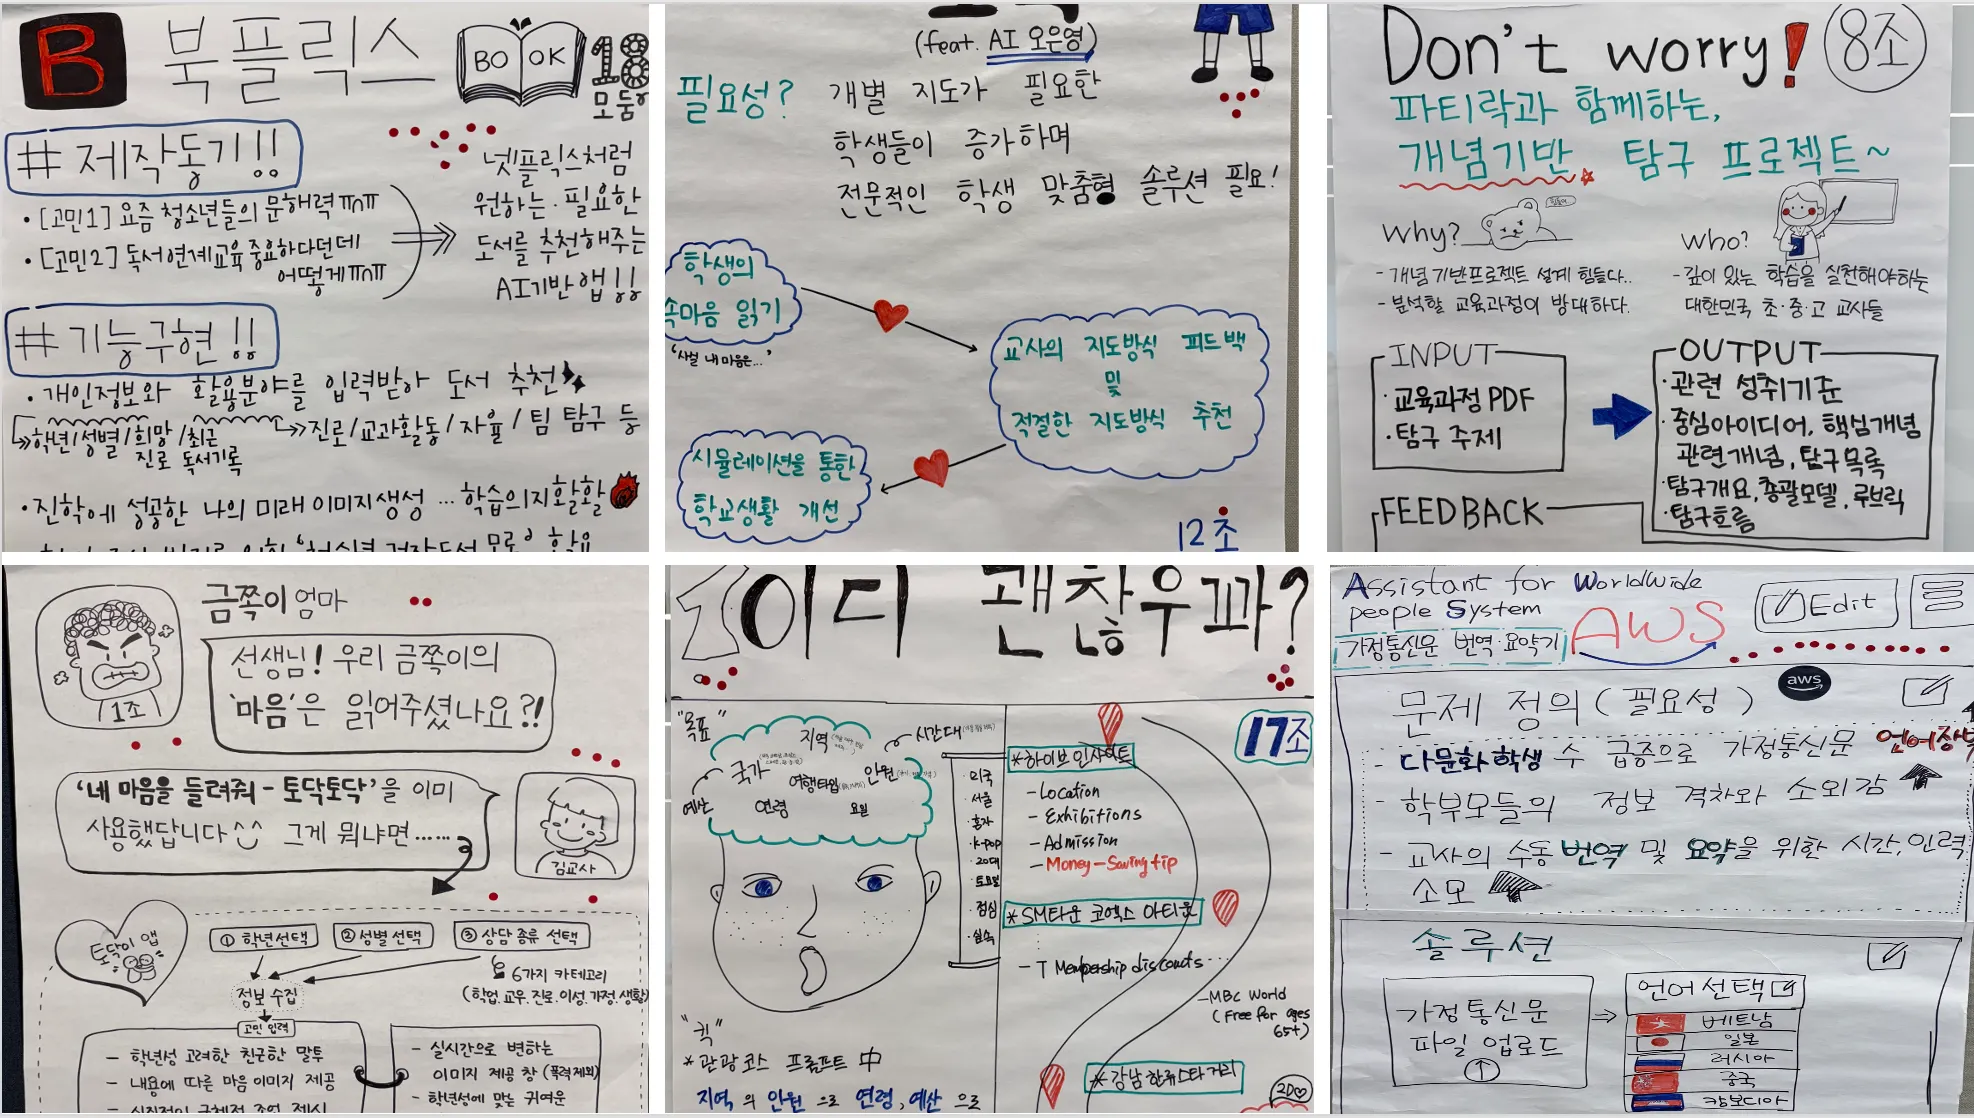 B 북플릭스
BO OK
18
모둠
# 제작동기!!
• [고민1] 요즘 청소년들의 문해력 ㅠㅠ
• [고민2] 독서연계교육 중요하다던데
어떻게 ㅠㅠ
넷플릭스처럼
원하는·필요한
도서를 추천해주는
AI기반 앱!!
# 기능구현!!
• 개인정보와 활용분야를 입력받아 도서 추천
학년/성별/희망진로/최근독서기록
진로/교과활동/자율/팀 탐구 등
• 진학에 성공한 나의 미래 이미지생성 ... 학습의지활활
(feat. AI 오은영)
필요성? 개별 지도가 필요한
학생들이 증가하며
전문적인 학생 맞춤형 솔루션 필요!
학생의
속마음 읽기
'사실 내 마음은...'
교사의 지도방식 피드백
및
적절한 지도방식 추천
시뮬레이션을 통한
학교생활 개선
12조
Don't worry!
8조
파티락과 함께하는,
개념기반 탐구 프로젝트~
Why?
힘들어..
- 개념기반프로젝트 설계 힘들다..
- 분석할 교육과정이 방대하다.
Who?
- 깊이 있는 학습을 실천해야하는
대한민국 초·중·고 교사들
INPUT
· 교육과정 PDF
· 탐구 주제
OUTPUT
· 관련 성취기준
· 중심아이디어, 핵심개념
관련개념, 탐구목록
· 탐구개요, 총괄모델, 루브릭
· 탐구흐름
FEEDBACK
금쪽이 엄마
1조
선생님! 우리 금쪽이의
'마음'은 읽어주셨나요?!
'네 마음을 들려줘 - 토닥토닥'을 이미
사용했답니다^^ 그게 뭐냐면......
김교사
토닥이 앱
① 학년선택
② 성별 선택
③ 상담 종류 선택
6가지 카테고리
(학업.교우.진로.이성.가정.생활)
정보 수집
고민 입력
- 학년성 고려한 친근한 말투
- 내용에 따른 마음 이미지 제공
- 실시간으로 변하는
이미지 제공 창 (폭력제외)
- 학년성에 맞는 귀여운
이디 괜찮우꽈?
17조
"목표"
지역
시간대
국가
여행타입
인원
예산
연령
요일
· 외국
· 서울
· 혼자
· K-pop
· 20대
· 토요일
· 점심
· 실속
* 하이브 인사이트
- Location
- Exhibitions
- Admission
- Money-Saving tip
* SM타운 코엑스 아티움
- T Membership discounts...
- MBC World
(Free for ages
65+)
* 강남 한류스타거리
"킥"
* 관광코스 프롬프트 中
지역 의 인원 으로 연령, 예산 으로
Assistant for Worldwide
people System
가정통신문 번역·요약기
AWS
Edit
aws
문제 정의 (필요성)
- 다문화학생 수 급증으로 가정통신문
- 학부모들의 정보 격차와 소외감
- 교사의 수동 번역 및 요약을 위한 시간, 인력
소모
솔루션
가정통신문
파일 업로드
언어선택
베트남
일본
러시아
중국
캄보디아